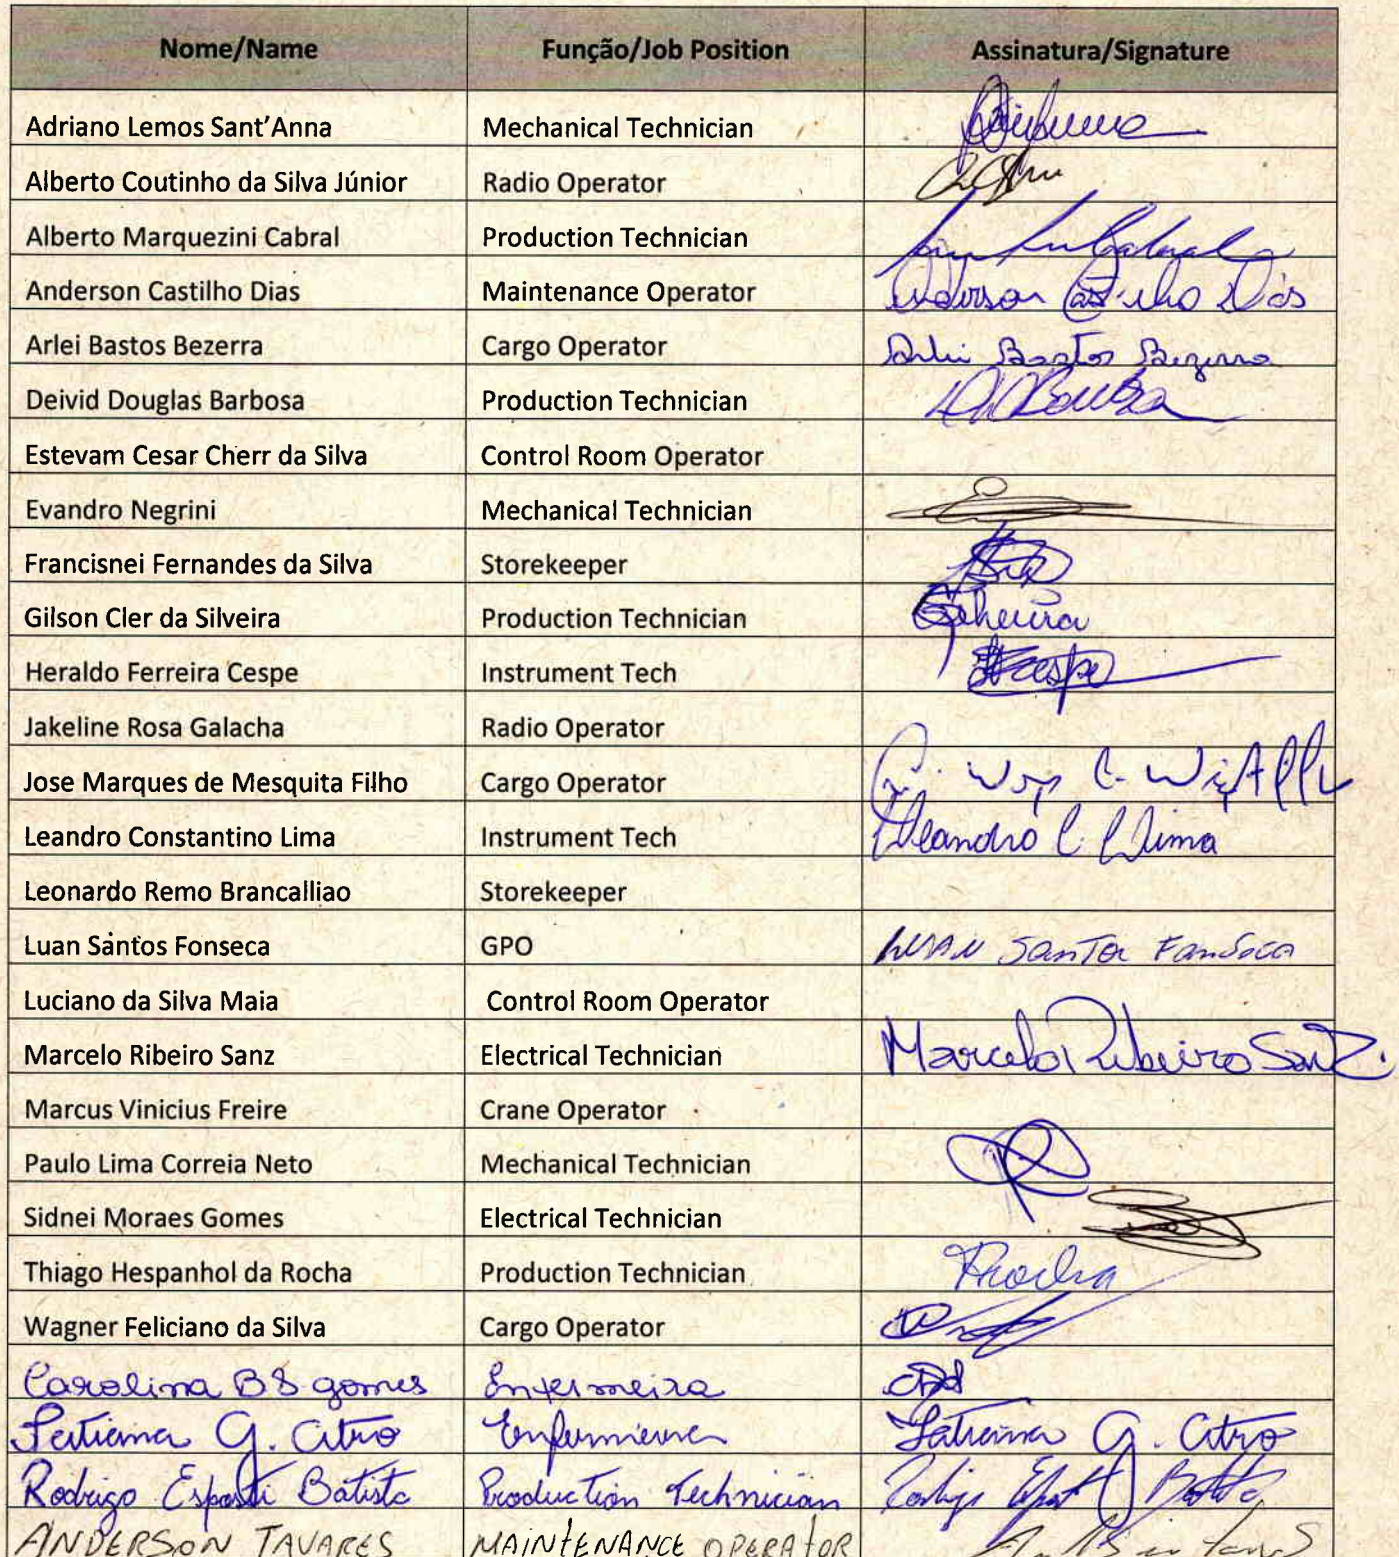 Nome/Name Função/Job Position Assinatura/Signature
Adriano Lemos Sant'Anna Mechanical Technician
Alberto Coutinho da Silva Júnior Radio Operator
Alberto Marquezini Cabral Production Technician
Anderson Castilho Dias Maintenance Operator Anderson Castilho Dias
Arlei Bastos Bezerra Cargo Operator Arlei Bastos Bezerra
Deivid Douglas Barbosa Production Technician
Estevam Cesar Cherr da Silva Control Room Operator
Evandro Negrini Mechanical Technician
Francisnei Fernandes da Silva Storekeeper
Gilson Cler da Silveira Production Technician
Heraldo Ferreira Cespe Instrument Tech
Jakeline Rosa Galacha Radio Operator
Jose Marques de Mesquita Filho Cargo Operator
Leandro Constantino Lima Instrument Tech Leandro C. Lima
Leonardo Remo Brancalliao Storekeeper
Luan Santos Fonseca GPO Luan Santos Fonseca
Luciano da Silva Maia Control Room Operator
Marcelo Ribeiro Sanz Electrical Technician Marcelo Ribeiro Sanz
Marcus Vinicius Freire Crane Operator
Paulo Lima Correia Neto Mechanical Technician
Sidnei Moraes Gomes Electrical Technician
Thiago Hespanhol da Rocha Production Technician TRocha
Wagner Feliciano da Silva Cargo Operator
Carolina B S gomes Enfermeira
Patricia G. Citro Enfermeira Patricia G. Citro
Rodrigo Esposti Batista Production Technician Rodrigo Batista
ANDERSON TAVARES MAINTENANCE OPERATOR